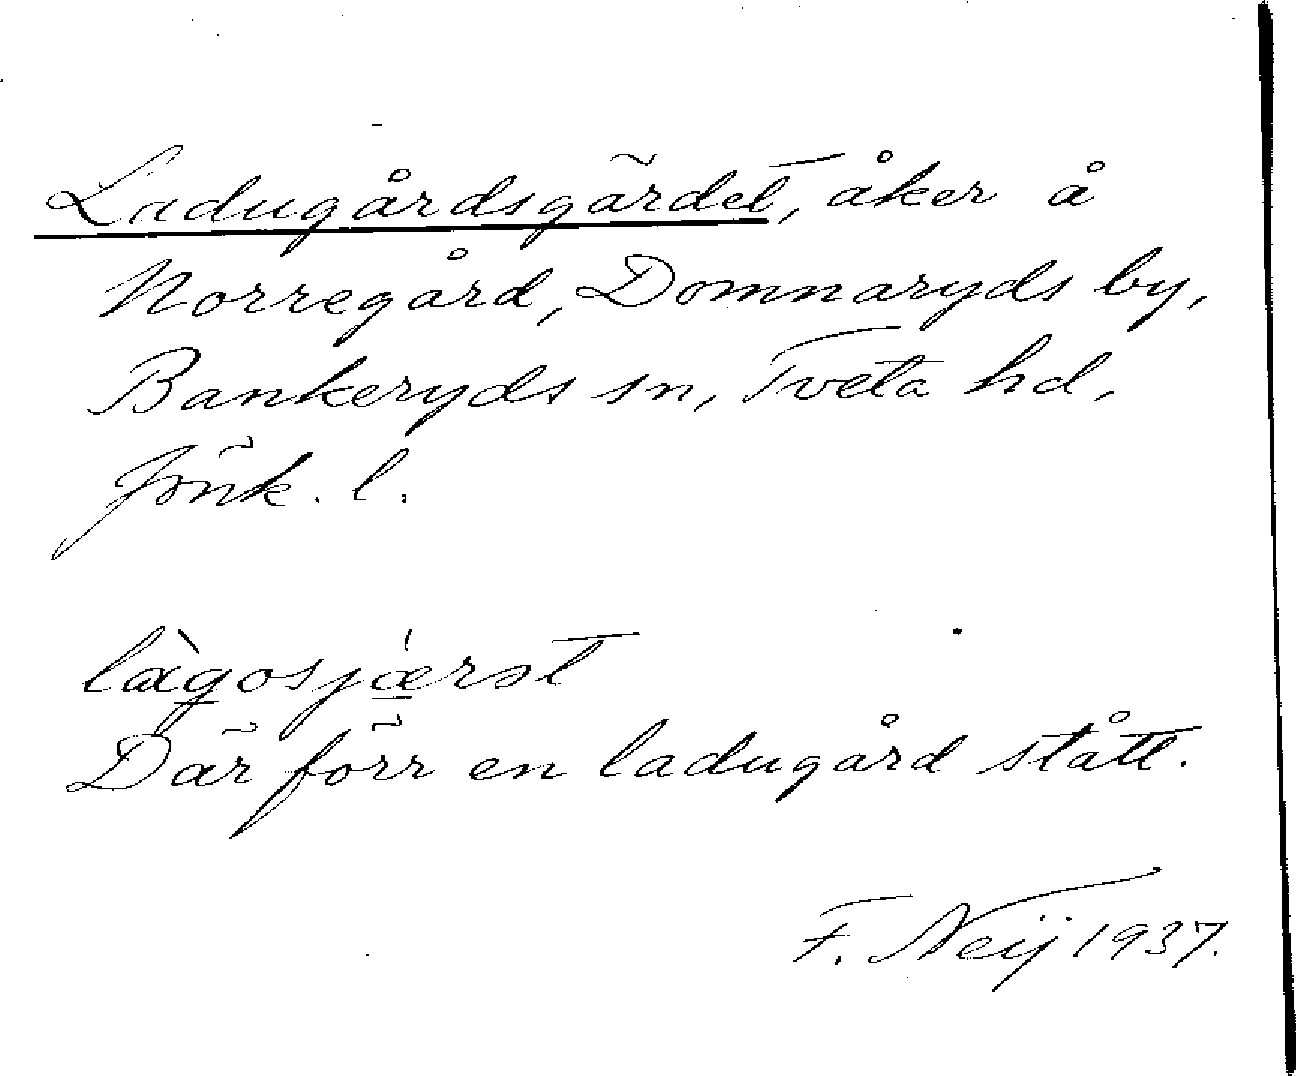 Ladugårdsgärdet, åker å
Norregård, Domnaryds by,
Bankeryds sn, Tveta hd,
Jönk. l.
làgosjæ̀rət
Där förr en ladugård stått.
F. Neij 1937.